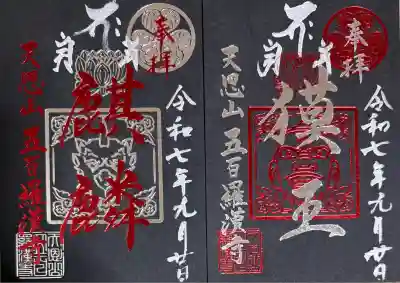 奉拝
令和七年九月廿日
麒麟
天恩山 五百羅漢寺
奉拝
令和七年九月廿日
獏王
天恩山 五百羅漢寺